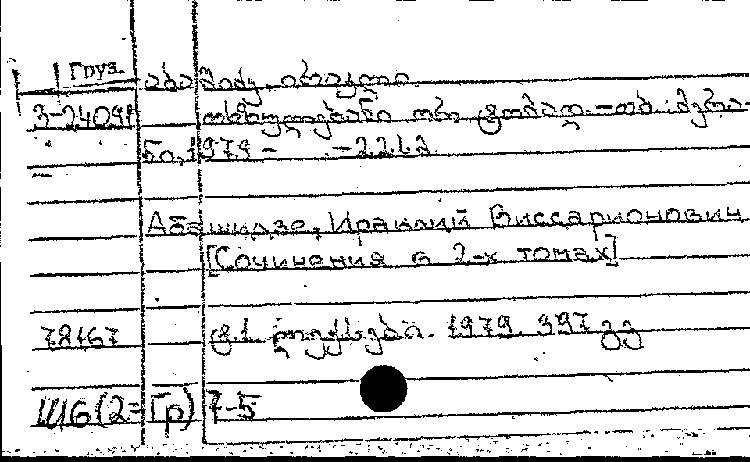 Груз.
აბაშიძე, ირაკლი
3-24091 თხზულებანი ორ ტომად. -თბ.: მერა-
ნი, 1979 - -22სმ
Абашидзе, Ираклий Виссарионович
[Сочинения в 2-х томах]
78167 ტ.1. ლექსები. 1979. 397 გვ
Ш6(2=Гр)7-5